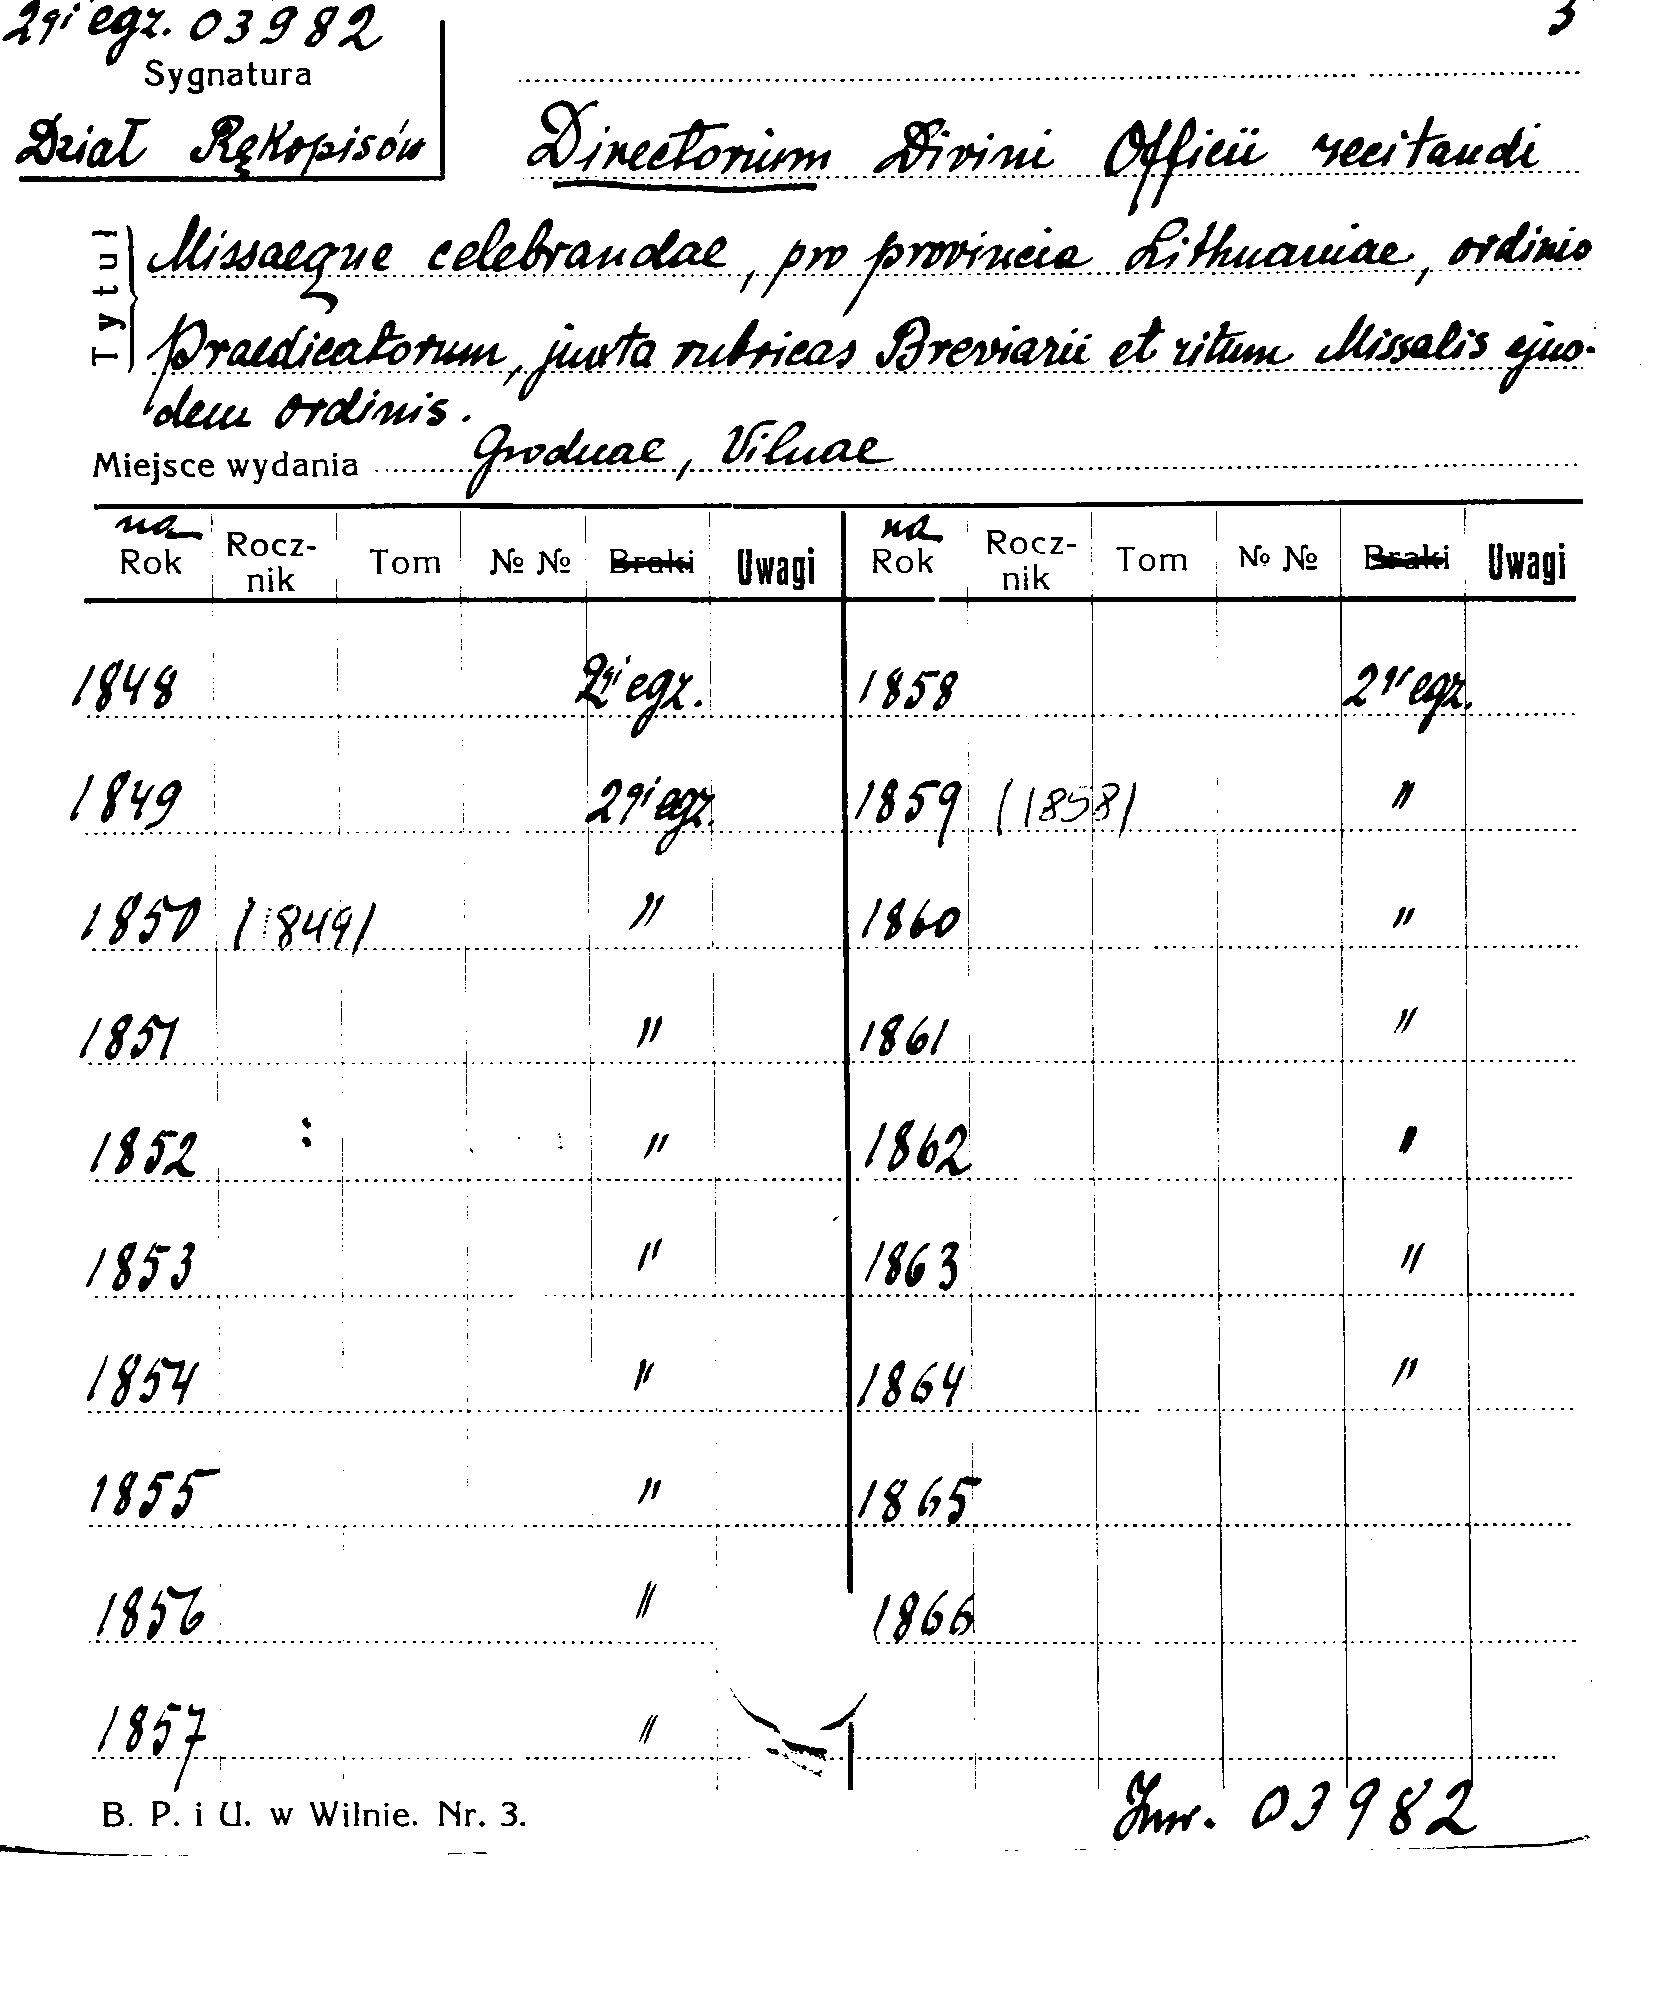 2gi egz. 03982
3
Sygnatura
Dział Rękopisów
Directorium Divini Officii recitandi
Tytuł
Missaeque celebrandae, pro provincia Lithuaniae, ordinis
Praedicatorum, juxta rubricas Breviarii et ritum Missalis ejus-
dem ordinis.
Miejsce wydania Grodnae, Vilnae
na Rok Rocz-nik Tom № № Braki Uwagi na Rok Rocz-nik Tom № № Braki Uwagi
1848 2gi egz. 1858 2gi egz.
1849 2gi egz. 1859 (1858) "
1850 (1849) " 1860 "
1851 " 1861 "
1852 " 1862 "
1853 " 1863 "
1854 " 1864 "
1855 " 1865
1856 " 1866
1857 "
B. P. i U. w Wilnie. Nr. 3.
Inw. 03982